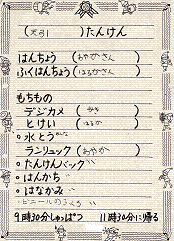 (天弓)たんけん
はんちょう(あやかさん)
ふくはんちょう(はるかさん)
もちもの
デジカメ(みき)
とけい(はるか)
○水とう
ランリュック(あやか)
○たんけんバック
○はんかち
○はなかみ
ビニールのふくろ
9時30分しゅぱつ 11時30分に帰る